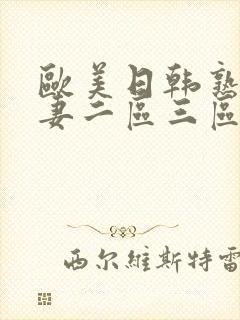 歐美日韩熟
妻二區三區
西尔維斯特雷